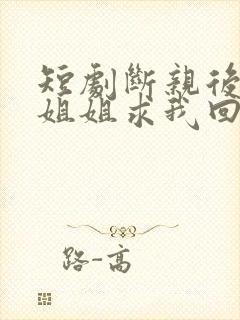 短劇斷親後
姐姐求我回
路-高